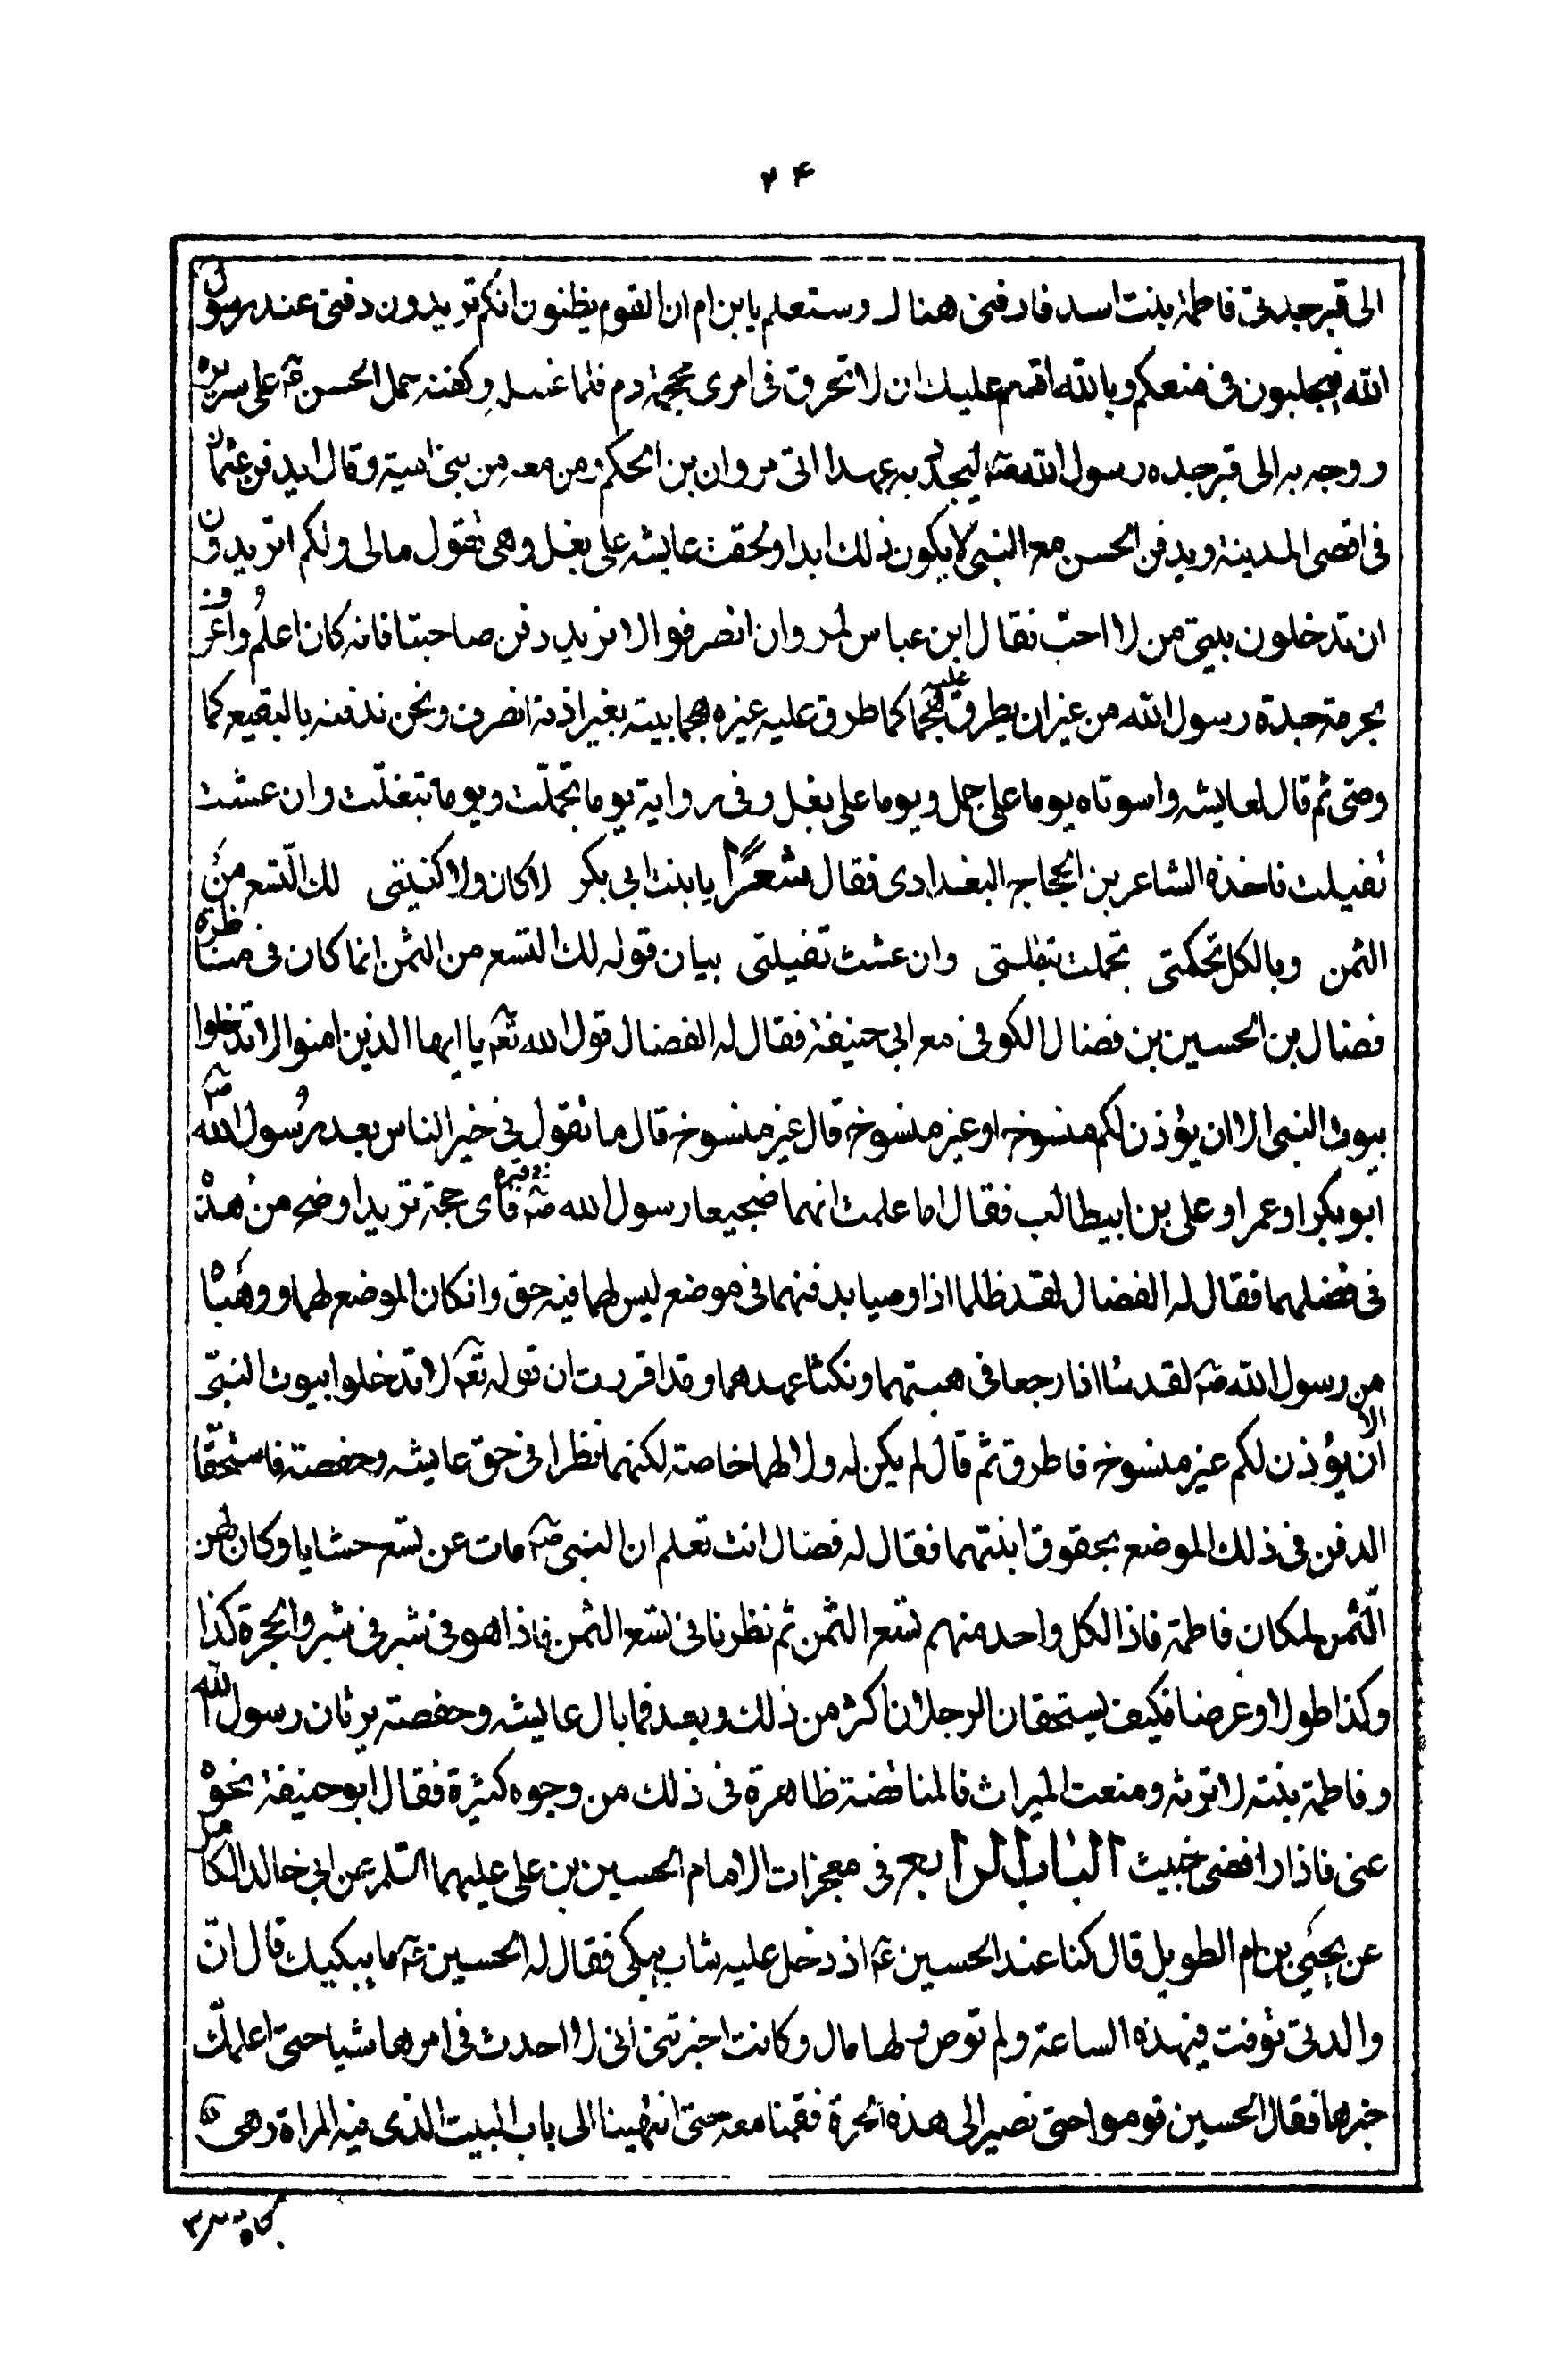 ۲۴
الى قبر جدتى فاطمة بنت اسد فادفنى هناك وستعلم يابن ام ان القوم يظنون انكم تريدون دفنى عند رسول
الله فيجلبون فى منعكم وبالله اقسم عليك ان لا تحرق فى امرى محجمة دم فلما غسله وكفنه حمل الحسن ع على سريره
ووجه به الى قبر جده رسول الله ص ليجدد به عهدا اتى مروان بن الحكم ومن معه من بنى امية وقال ايدفن عثمان
فى اقصى المدينة ويدفن الحسن مع النبى لا يكون ذلك ابدا ولحقت عايشه على بغل وهى تقول مالى ولكم اتريدون
ان تدخلون بيتى من لا احب فقال ابن عباس لمروان انصرفوا لا نريد دفن صاحبنا فانه كان اعلم واعرف
بحرمة جده رسول الله من غيران يطرق عليه هجما كما طرق عليه غيره هجما بيته بغير اذنه انصرف ونحن ندفنه بالبقيع كما
وصى ثم قال لعايشه واسوتاه يوما على جمل ويوما على بغل وفى رواية يوما تجملت ويوما تبغلت وان عشت
تفيلت فاخذه الشاعر بن الحجاج البغدادى فقال شعرا يا بنت ابى بكر لا كان ولا كنتى لك التسع من
الثمن وبالكل تحكمتى تجملت تبغلتى وان عشت تفيلتى بيان قوله لك التسع من الثمن انما كان فى مناظرة
فضال بن الحسين بن فضال الكوفى مع ابى حنيفة فقال له الفضال قول الله تعه يا ايها الذين امنوا لا تدخلوا
بيوت النبى الا ان يؤذن لكم منسوخ او غير منسوخ قال غير منسوخ قال ما تقول فى خير الناس بعد رسول الله ص
ابو بكر او عمر او على بن ابيطالب فقال اما علمت انهما ضجيعا رسول الله ص فى قبره فاى حجة تريد اوضح من هذه
فى فضلهما فقال له الفضال لقد ظلما اذا وصيا بدفنهما فى موضع ليس لهما فيه حق وانكان الموضع لهما ووهباه
من رسول الله ص لقد ساا اذا رجعا فى هبتهما ونكثا عهدهما وقد اقررت ان قوله تعه لا تدخلوا بيوت النبى
الا ان يؤذن لكم غير منسوخ فاطرق ثم قال لم يكن له ولا لهما خاصة لكنهما نظرا فى حق عايشه وحفصة فاستحقا
الدفن فى ذلك الموضع بحقوق ابنتهما فقال له فضال انت تعلم ان النبى ص مات عن تسع حشايا وكان لهن
الثمن لمكان فاطمة فاذا لكل واحد منهم تسع الثمن ثم نظرنا فى تسع الثمن فاذا هو فى شبر فى شبر والحجرة كذا
وكذا طولا وعرضا فكيف يستحقان الرجلان اكثر من ذلك وبعد فما بال عايشه وحفصة يرثان رسول الله
وفاطمة بنته لا ترثه ومنعت الميراث فالمناقضة ظاهرة فى ذلك من وجوه كثيرة فقال ابو حنيفة نحوه
عنى فاذا رافضى خبيث الباب الرابع فى معجزات الامام الحسين بن على عليهما السلم عن ابى خالد الكا
عن يحيى بن ام الطويل قال كنا عند الحسين ع اذ دخل عليه شاب يبكى فقال له الحسين ع ما يبكيك قال ان
والدتى توفت فيهذه الساعة ولم توص ولها مال وكانت اخبرتنى انى لا احدث فى امرها شيا حتى اعلمك
خبرها فقال الحسين قوموا حتى نصير الى هذه الحرة فقمنا معه حتى انتهينا الى باب البيت الذى فيه المراة وهى